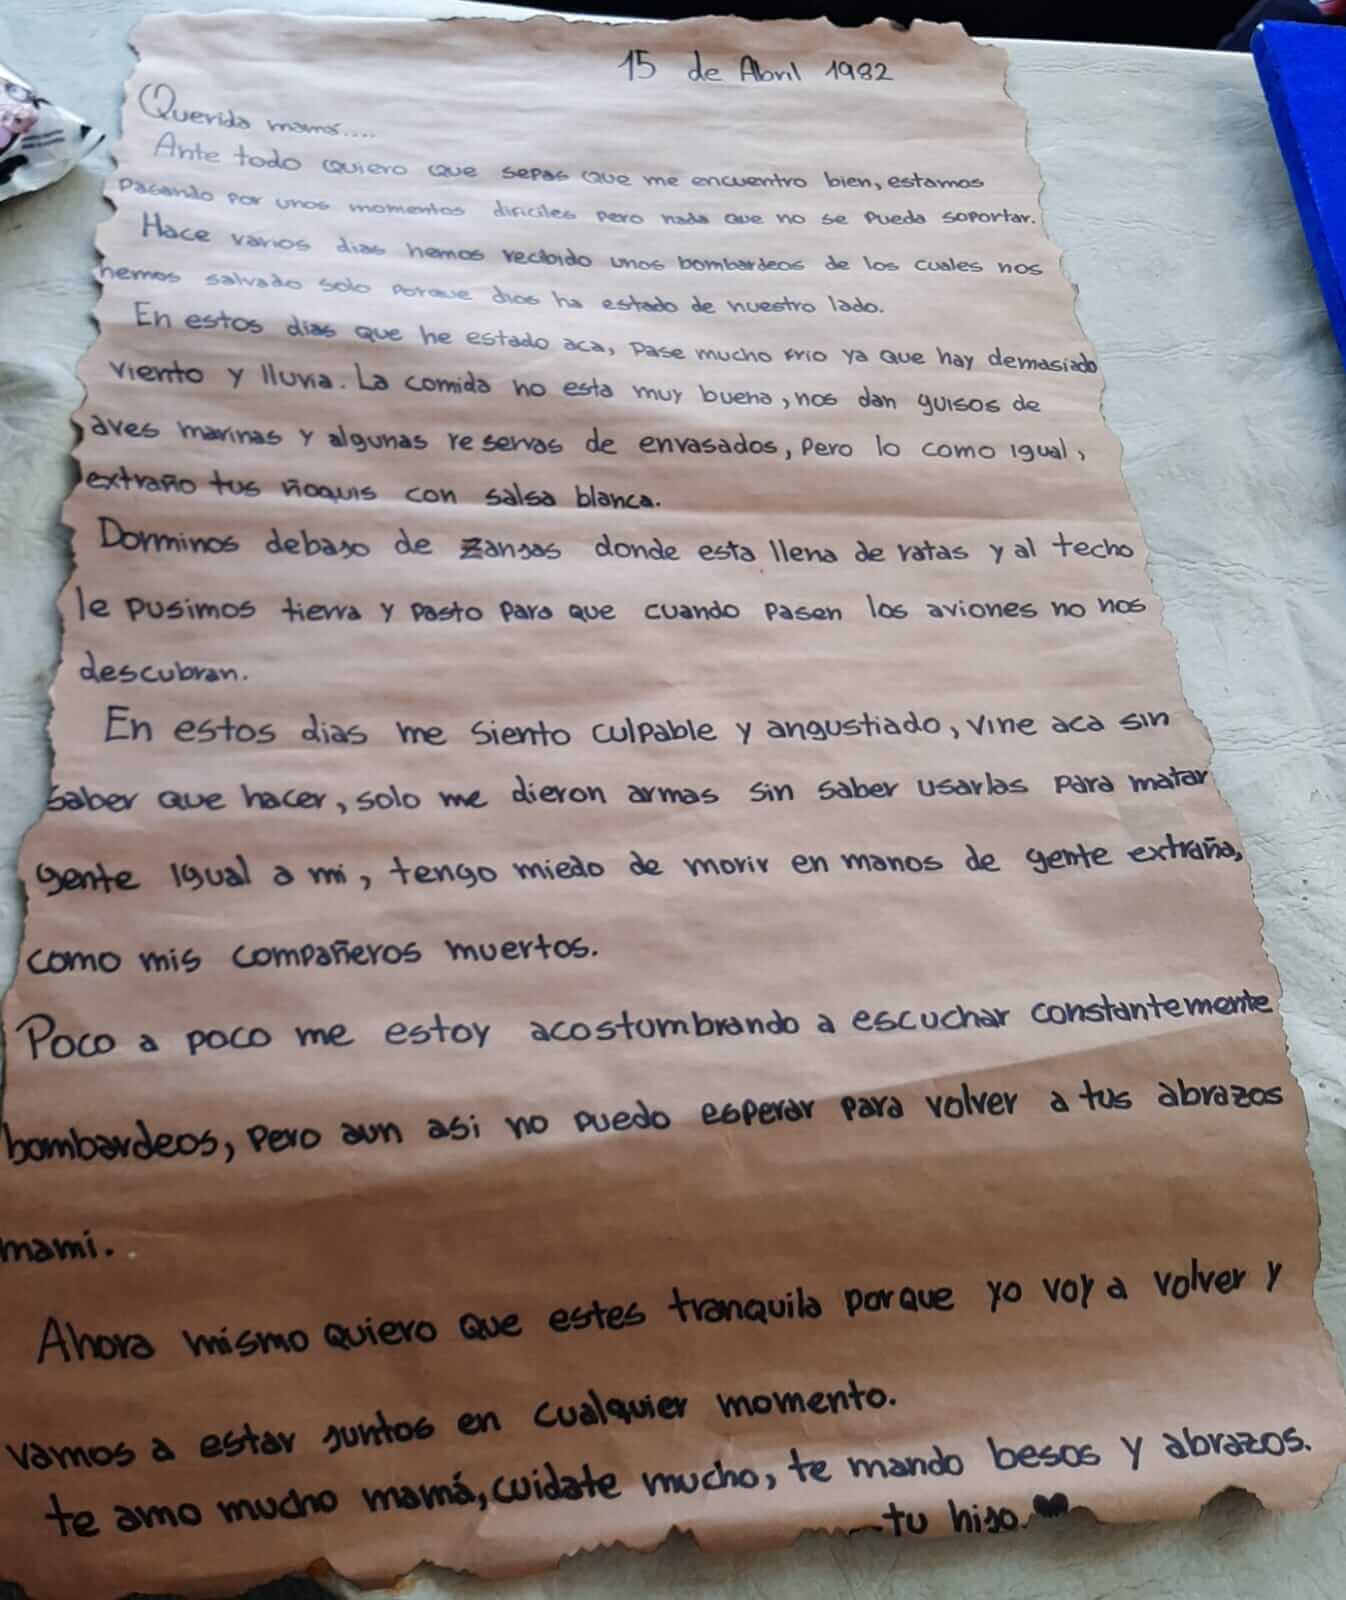 15 de Abril 1982
Querida mamá....
Ante todo quiero que sepas que me encuentro bien, estamos
pasando por unos momentos dificiles pero nada que no se pueda soportar.
Hace varios dias hemos recibido unos bombardeos de los cuales nos
hemos salvado solo porque dios ha estado de nuestro lado.
En estos dias que he estado aca, pase mucho frio ya que hay demasiado
viento y lluvia. La comida no esta muy buena, nos dan guisos de
aves marinas y algunas reservas de envasados, pero lo como igual,
extraño tus ñoquis con salsa blanca.
Dormimos debajo de zanjas donde esta llena de ratas y al techo
le pusimos tierra y pasto para que cuando pasen los aviones no nos
descubran.
En estos dias me siento culpable y angustiado, vine aca sin
saber que hacer, solo me dieron armas sin saber usarlas para matar
gente igual a mi, tengo miedo de morir en manos de gente extraña,
como mis compañeros muertos.
Poco a poco me estoy acostumbrando a escuchar constantemente
bombardeos, pero aun asi no puedo esperar para volver a tus abrazos
mami.
Ahora mismo quiero que estes tranquila porque yo voy a volver y
vamos a estar juntos en cualquier momento.
te amo mucho mamá, cuidate mucho, te mando besos y abrazos.
tu hijo.♥